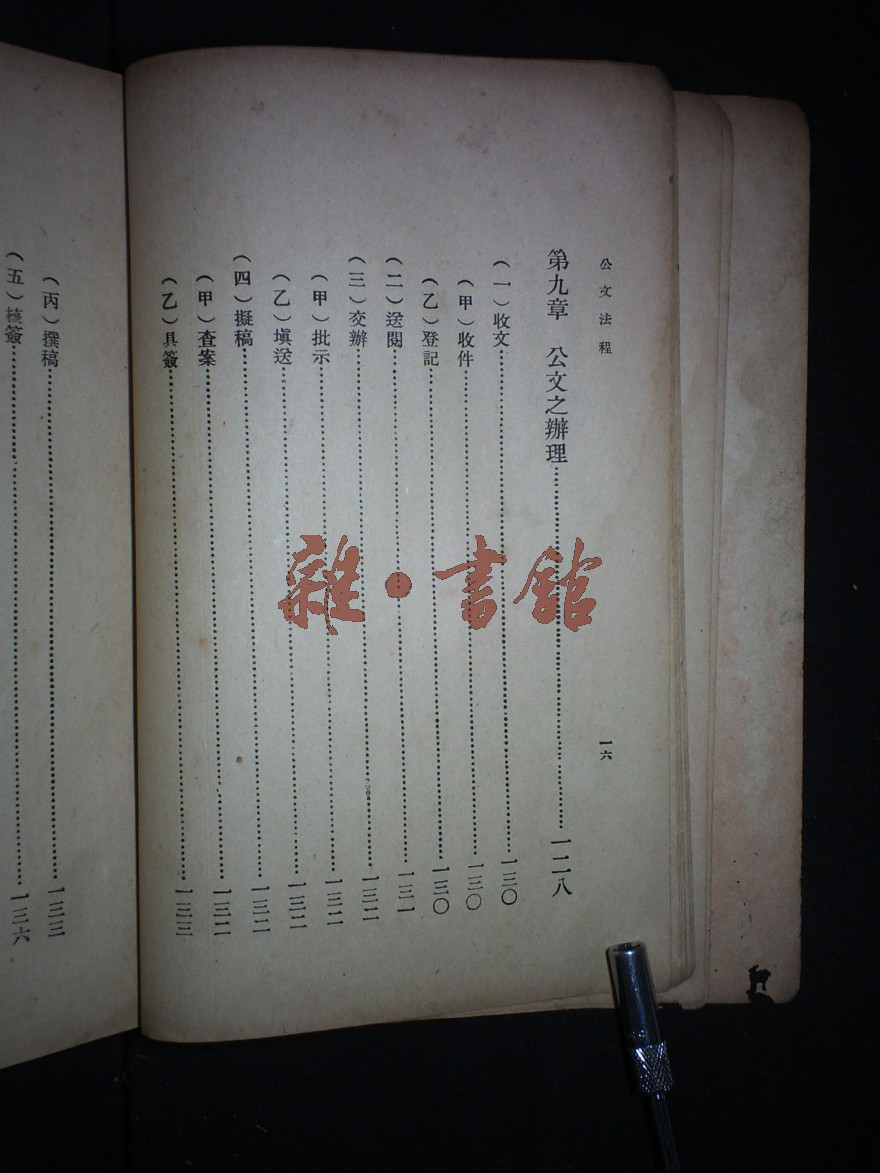 公文法程
一六
第九章　公文之辦理…………一二八
（一）收文…………一三〇
（甲）收件…………一三〇
（乙）登記…………一三〇
（二）送閱…………一三一
（三）交辦…………一三二
（甲）批示…………一三二
（乙）塡送…………一三二
（四）擬稿…………一三二
（甲）查案…………一三二
（乙）具簽…………一三三
（丙）撰稿…………一三三
（五）核簽…………一三六
雜·書館